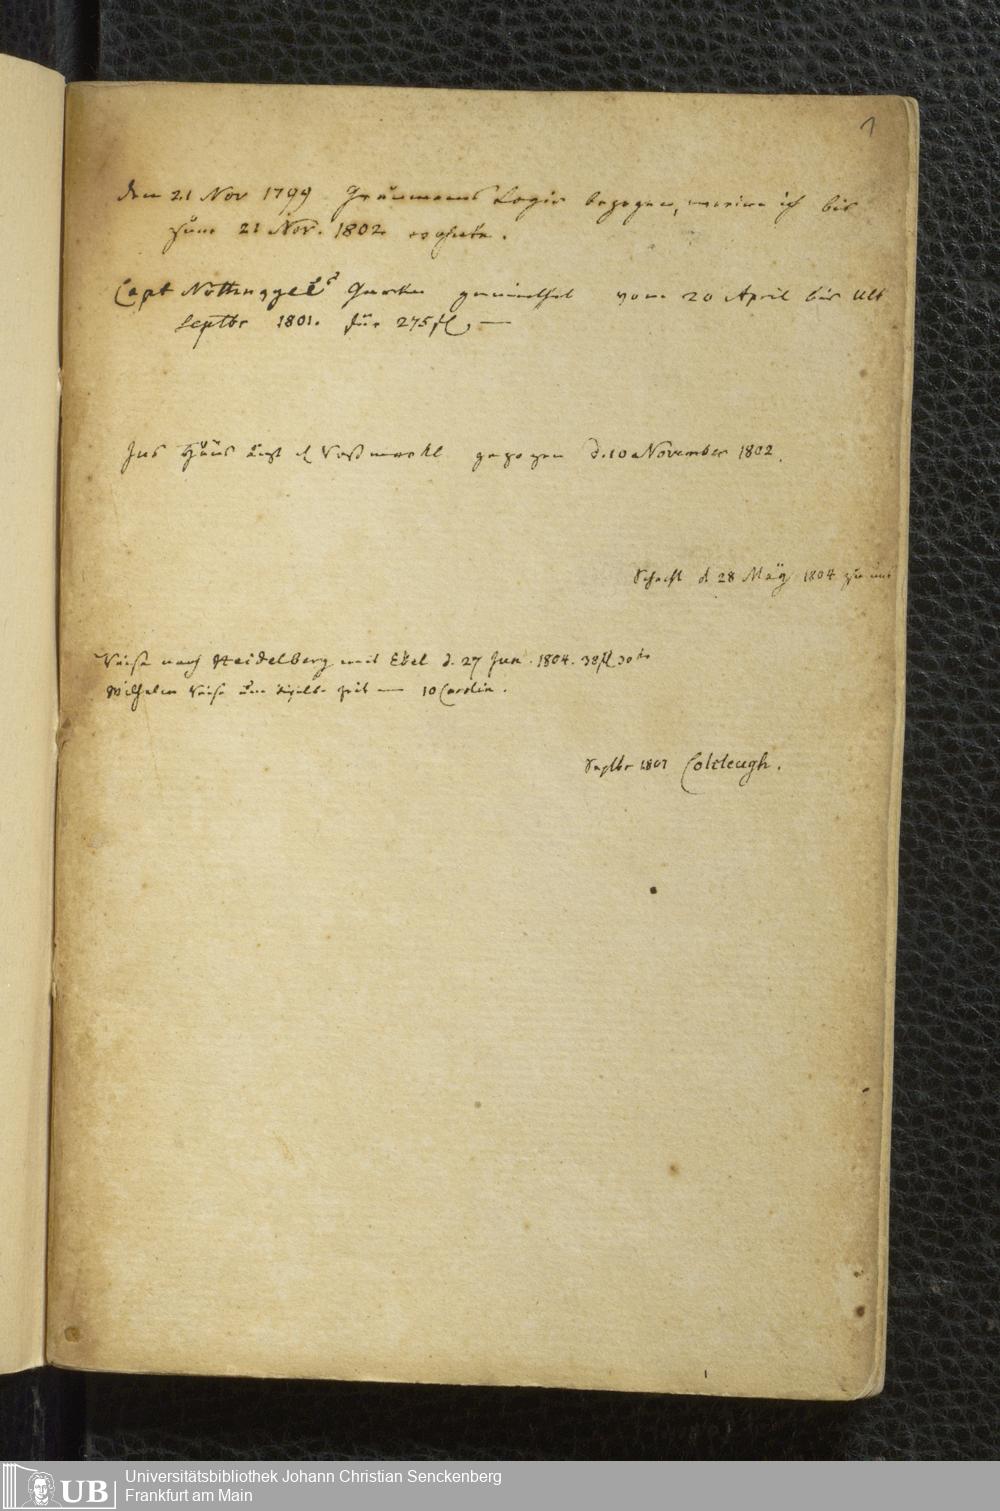 1
den 21 Nov 1799 Graumanns Logis bezogen, worin ich bis
zum 21 Nov. 1802
Capt Nöthnagels Garten gemiethet vom 20 April bis Ult
Septbr 1801. für 275 fl, —
Ins Haus auf d Roßmarkt gezogen d. 10 November 1802.
d 28 May 1804 zu uns
Reise nach Heidelberg mit Ebel d. 27 Jun. 1804. 38 fl 30 kr
Wilhelm Reise um dieselbe Zeit — 10 Carolin.
Septbr 1807 Colcleugh.
1
UB
Universitätsbibliothek Johann Christian Senckenberg
Frankfurt am Main